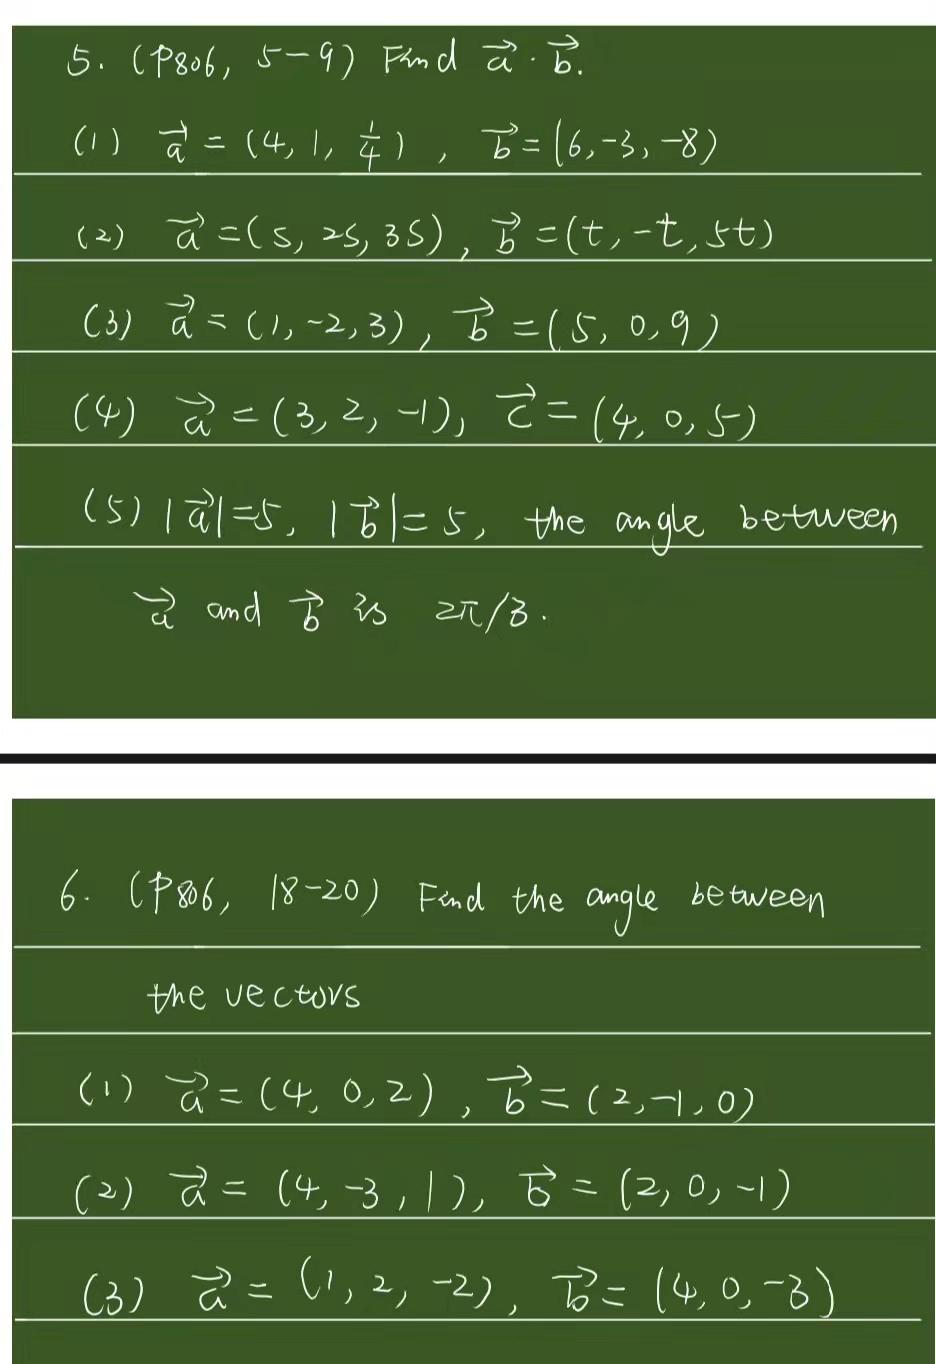 5. (P806, 5-9) Find \vec{a} · \vec{b}.
(1) \vec{a} = (4, 1, 1/4), \vec{b} = (6, -3, -8)
(2) \vec{a} = (s, 2s, 3s), \vec{b} = (t, -t, 5t)
(3) \vec{a} = (1, -2, 3), \vec{b} = (5, 0, 9)
(4) \vec{a} = (3, 2, -1), \vec{c} = (4, 0, 5)
(5) |\vec{a}| = 5, |\vec{b}| = 5, the angle between
\vec{a} and \vec{b} is 2π/3.
6. (P806, 18-20) Find the angle between
the vectors
(1) \vec{a} = (4, 0, 2), \vec{b} = (2, -1, 0)
(2) \vec{a} = (4, -3, 1), \vec{b} = (2, 0, -1)
(3) \vec{a} = (1, 2, -2), \vec{b} = (4, 0, -3)